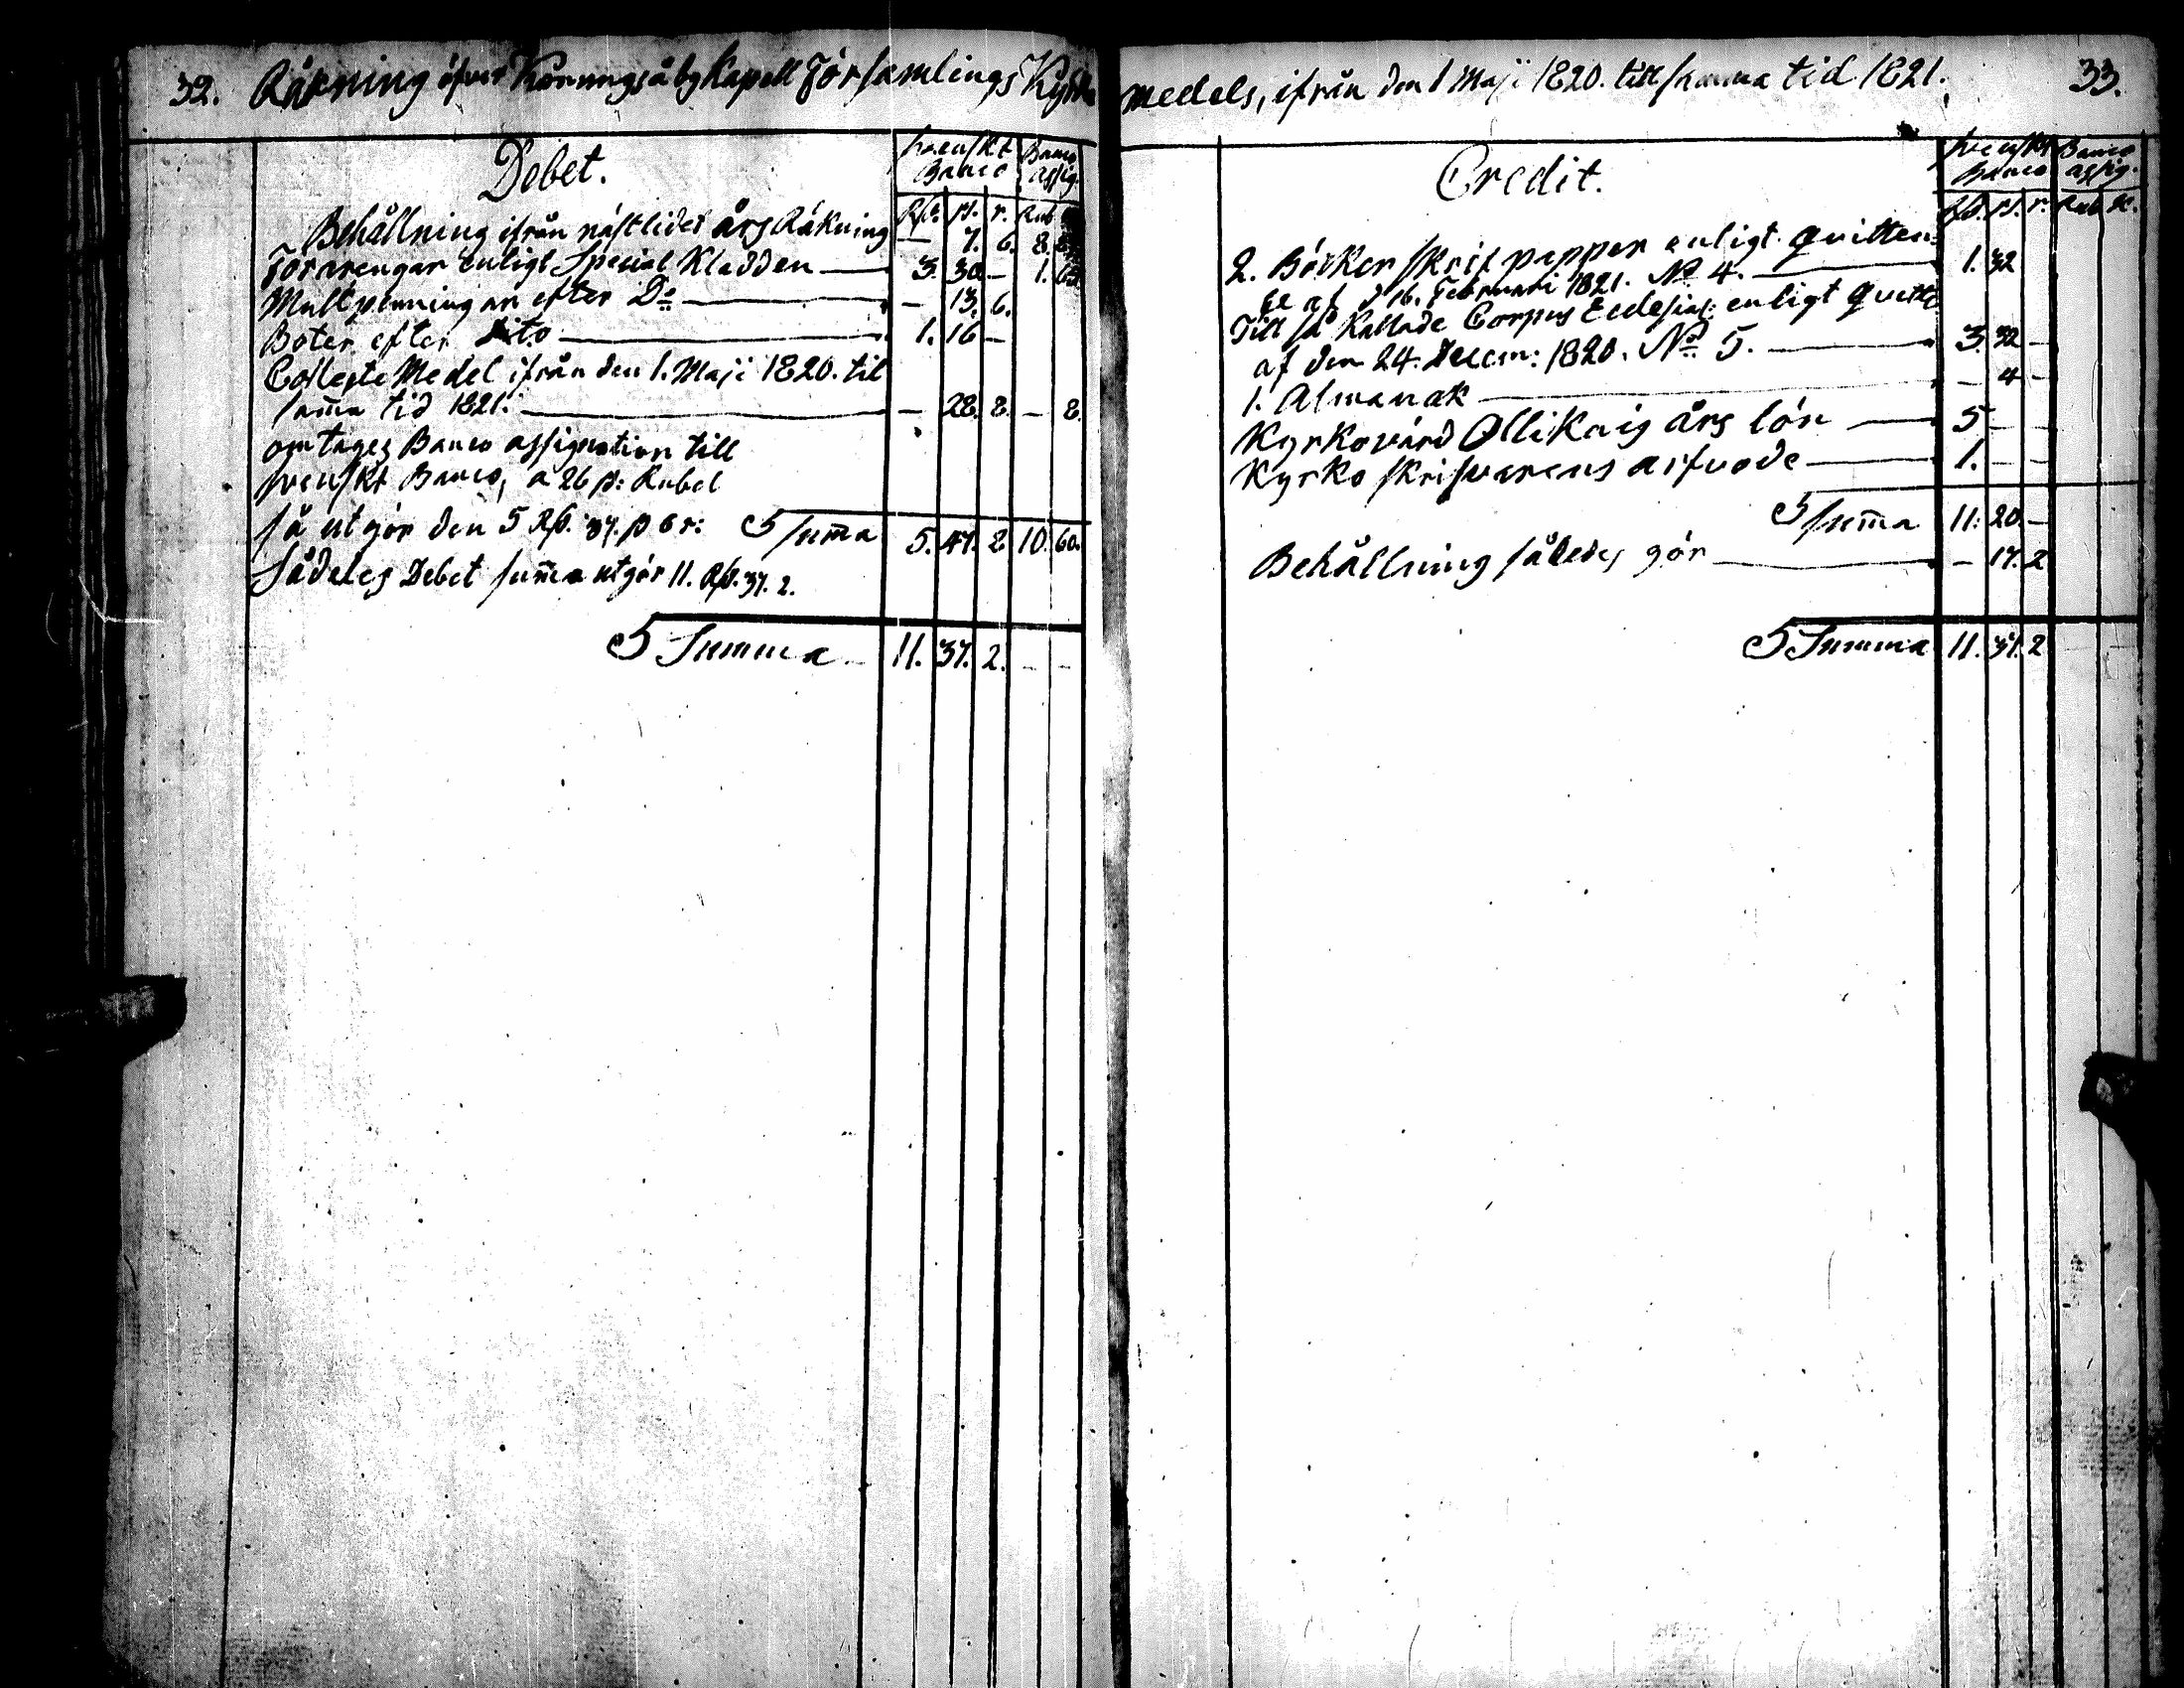 32. Räkning öfver Konungsåby Kapell Församlings Kyrko
Debet.
svenskt Banco
Banco assig.
Rd. s. r. Rub
Behållning ifrån nästlidet års Räkning — 7. 6. 8.
Föräringar enligt Special Kladden — 3. 30. — 1.
Mullpenningar efter Do — — 13. 6.
Böter efter Dito — 1. 16 —
Collecte Medel ifrån den 1. Maji 1820. til
sam̄a tid 1821. — — 28. 8. — 8.
omtages Banco assignation till
svenskt Banco, a 26 s: Rubel
så utgör den 5 Rd. 37. s 6 r: Sum̄a 5. 47. 8 10. 60.
Sådeles Debet sum̄a utgör 11. Rd. 37. 2.
Summa — 11. 37. 2. — —
medels, ifrån den 1 Maji 1820. till samma tid 1821. 33.
Credit.
svenskt Banco
Banco assig.
Rd. s. r. Rub K.
2. Böcker skrif papper enligt quitten:
ce af d 16. Februari 1821. No 4. — 1. 32
Till så Kallade Corpus Ecclesias: enligt quitte
af den 24. Decem: 1820. No 5. — 3. 32 —
1. Almanak — — 4 —
Kyrkovärd Ollikais års lön — 5 — —
Kyrko skrifvarens arfvode — 1. — —
Sum̄a 11: 20. —
Behållning således gör — — 17. 2
Summa 11. 37. 2